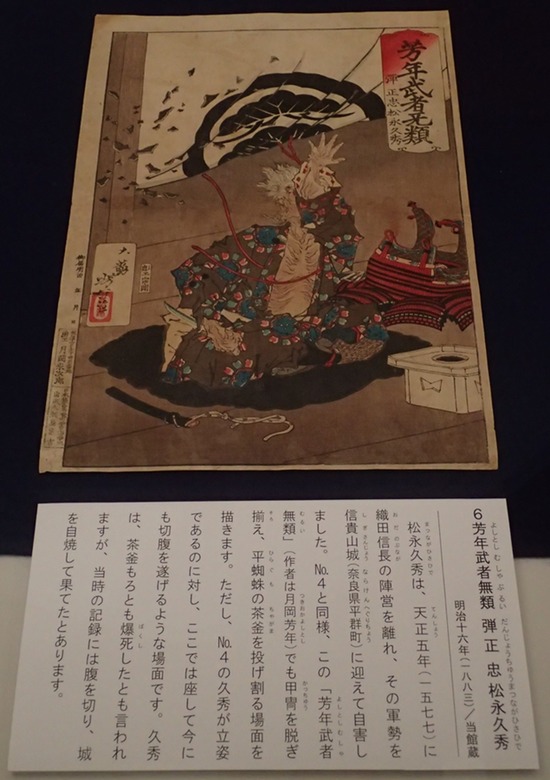 芳年武者无類
彈正忠松永久秀
大蘇
6 芳年武者無類 弾正忠松永久秀
明治十六年(一八八三)/当館蔵
松永久秀は、天正五年(一五七七)に
織田信長の陣営を離れ、その軍勢を
信貴山城(奈良県平群町)に迎えて自害し
ました。№4と同様、この「芳年武者
無類」(作者は月岡芳年)でも甲冑を脱ぎ
揃え、平蜘蛛の茶釜を投げ割る場面を
描きます。ただし、№4の久秀が立姿
であるのに対し、ここでは座して今に
も切腹を遂げるような場面です。久秀
は、茶釜もろとも爆死したとも言われ
ますが、当時の記録には腹を切り、城
を自焼して果てたとあります。